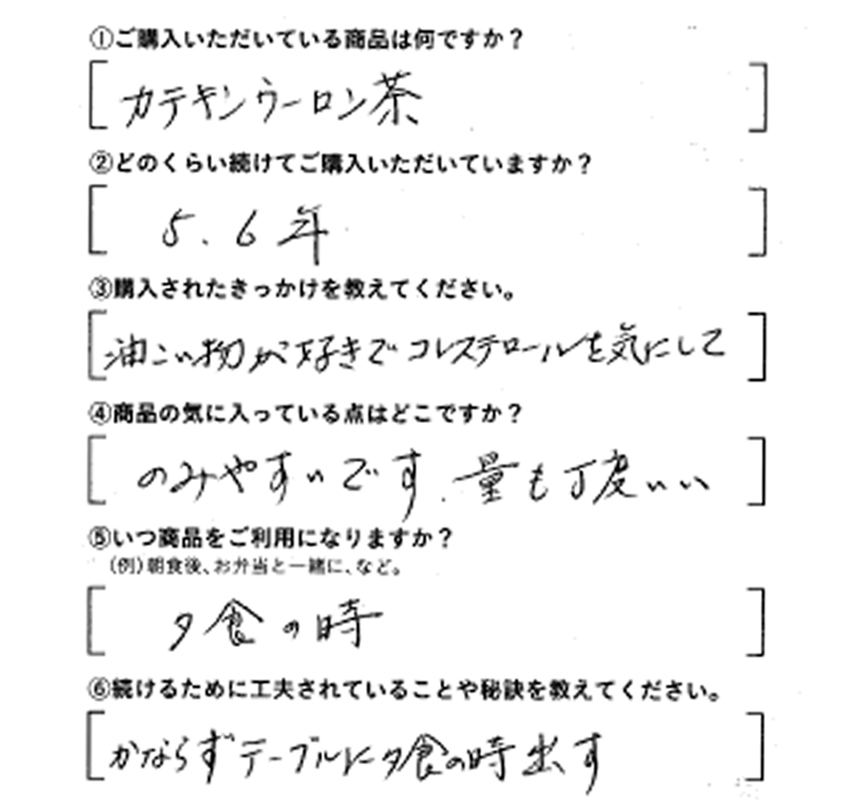 ①ご購入いただいている商品は何ですか？
カテキンウーロン茶
②どのくらい続けてご購入いただいていますか？
5、6年
③購入されたきっかけを教えてください。
油こい物が好きでコレステロールを気にして
④商品の気に入っている点はどこですか？
のみやすいです、量も丁度いい
⑤いつ商品をご利用になりますか？
(例)朝食後、お弁当と一緒に、など。
夕食の時
⑥続けるために工夫されていることや秘訣を教えてください。
かならずテーブルに夕食の時出す